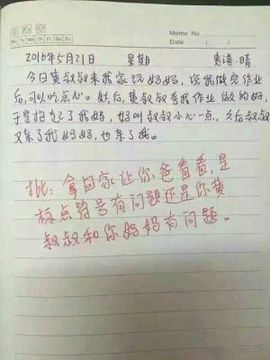 Memo No.
Mo Tu We Th Fr Sa Su
Date / /
2016年5月31日 星期 天气:晴
今日黄叔叔来我家玩妈妈,说我做完作业
后,可以吃点心。然后,黄叔叔夸我作业做的好,
于是抱起了我妈妈,妈叫叔叔小心一点,之后叔叔
又亲了我妈妈,也亲了我。
批:拿回家让你爸看看,是
标点符号有问题还是你黄
叔叔和你妈妈有问题。